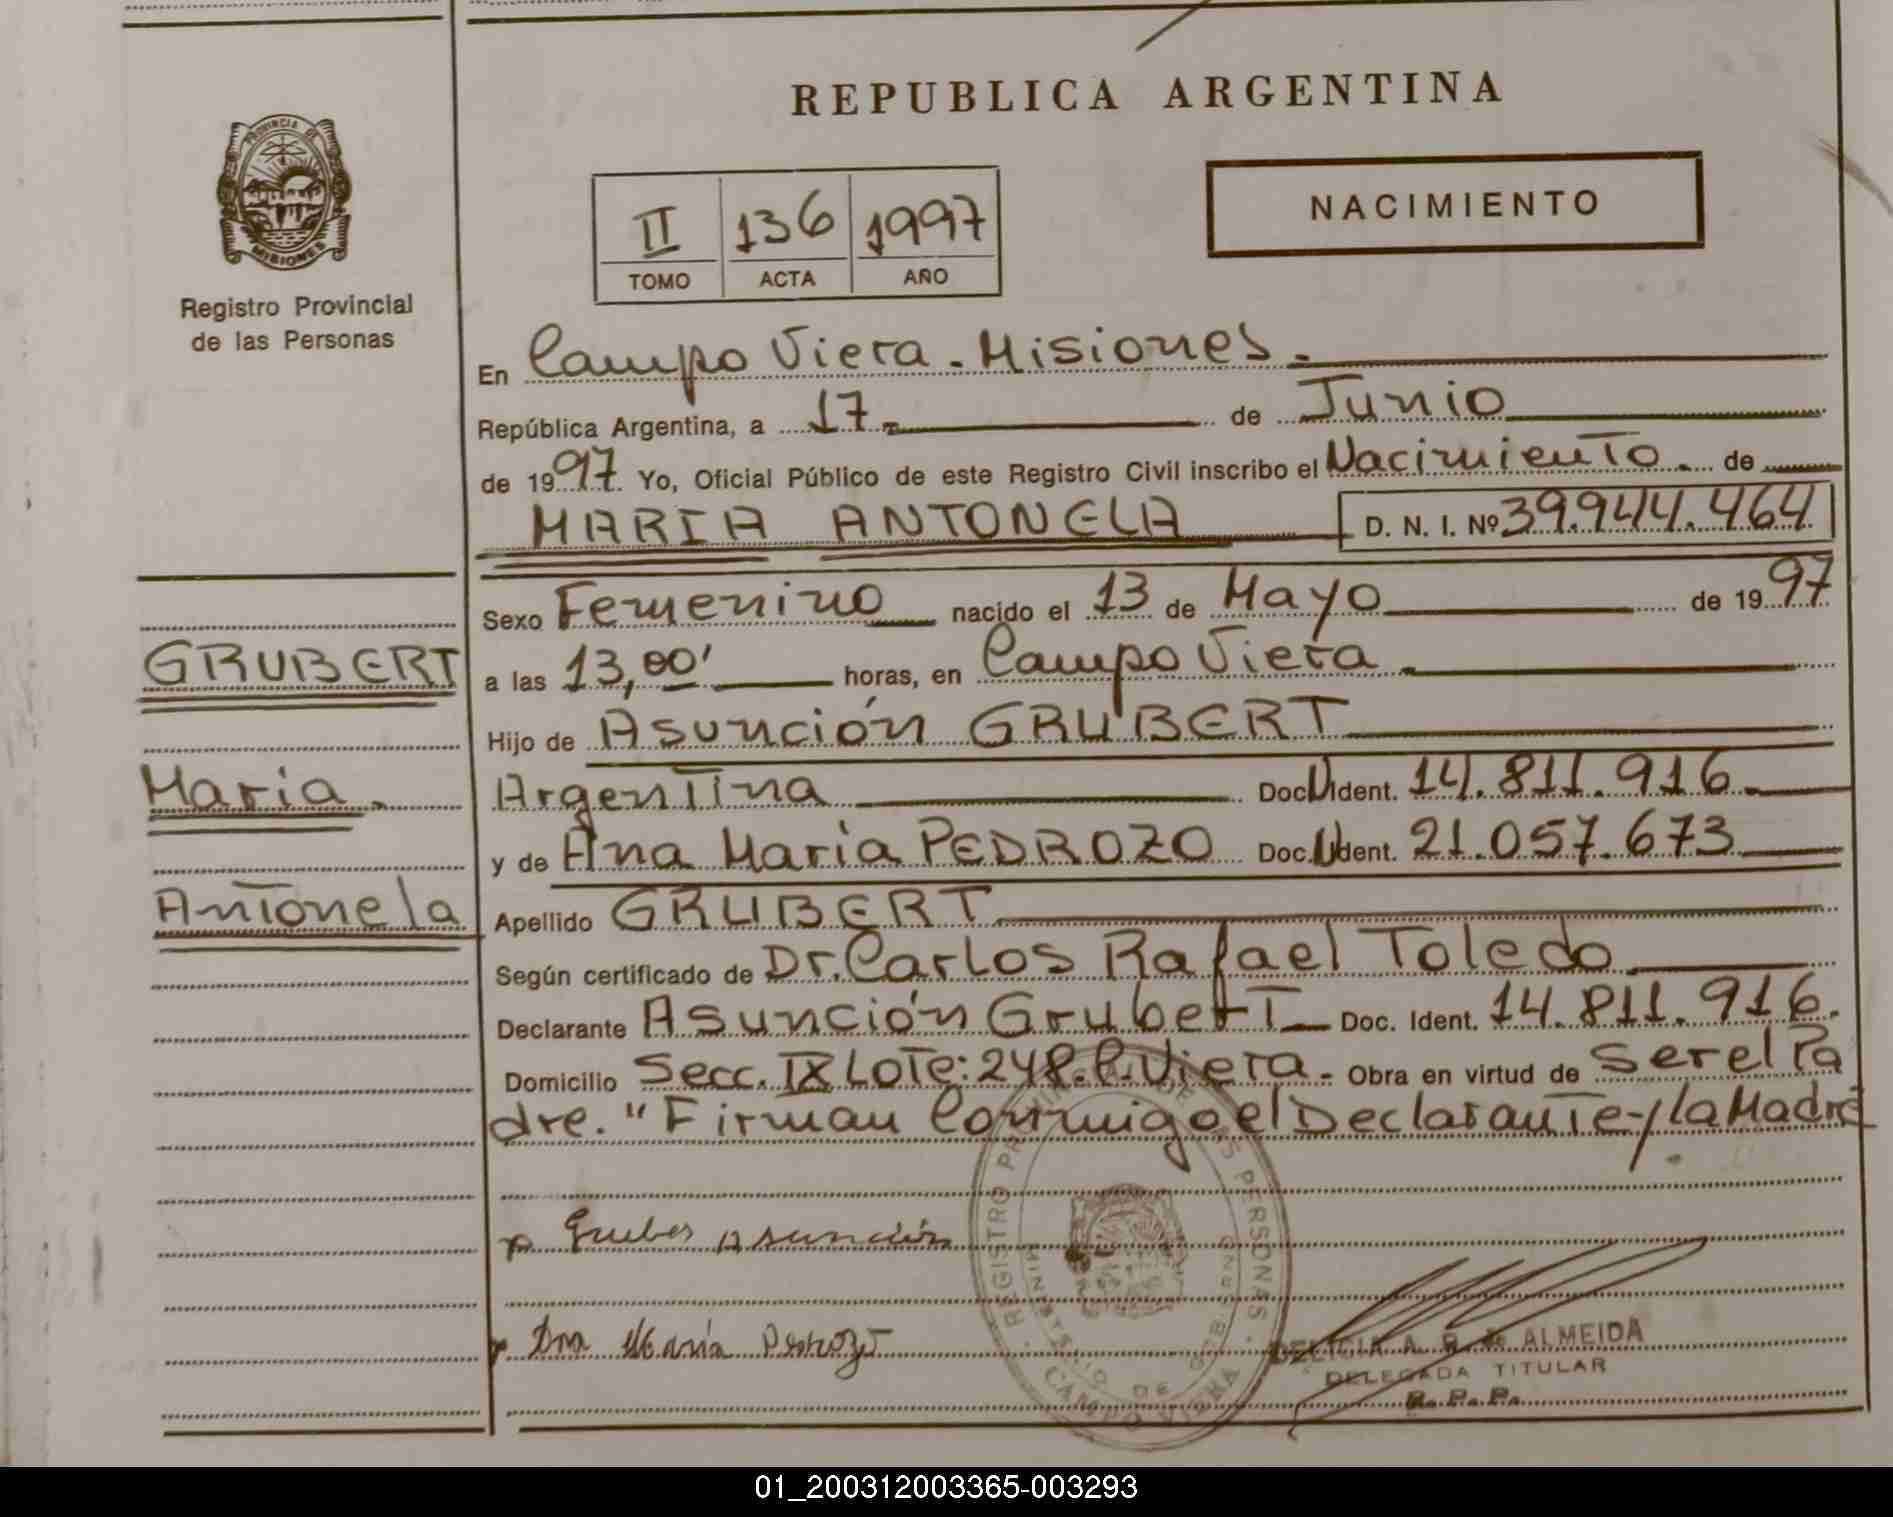 REPUBLICA ARGENTINA
PROVINCIA DE
MISIONES
Registro Provincial
de las Personas
II 136 1997
TOMO ACTA AÑO
NACIMIENTO
En Campo Viera - Misiones.
República Argentina, a 17 de Junio
de 1997. Yo, Oficial Público de este Registro Civil inscribo el Nacimiento. de
MARIA ANTONELA D. N. I. Nº 39.944.464
Sexo Femenino nacido el 13 de Mayo de 1997
GRUBERT
a las 13,00' horas, en Campo Viera.
Hijo de Asunción GRUBERT
Maria.
Argentina Doc. Ident. 14.811.916
y de Ana Maria PEDROZO Doc. Ident. 21.057.673
Antonela
Apellido GRUBERT
Según certificado de Dr. Carlos Rafael Toledo
Declarante Asunción Grubert Doc. Ident. 14.811.916.
Domicilio Secc. IX Lote: 248. C. Viera. Obra en virtud de Ser el Pa
dre. "Firman Conmigo el Declarante y la Madre
REGISTRO PROVINCIAL DE LAS PERSONAS
MINISTERIO DE GOBIERNO
CAMPO VIERA
Asunción
Ana Maria Pedrozo
DELICIA A. R. de ALMEIDA
DELEGADA TITULAR
R. P. P.
01_200312003365-003293